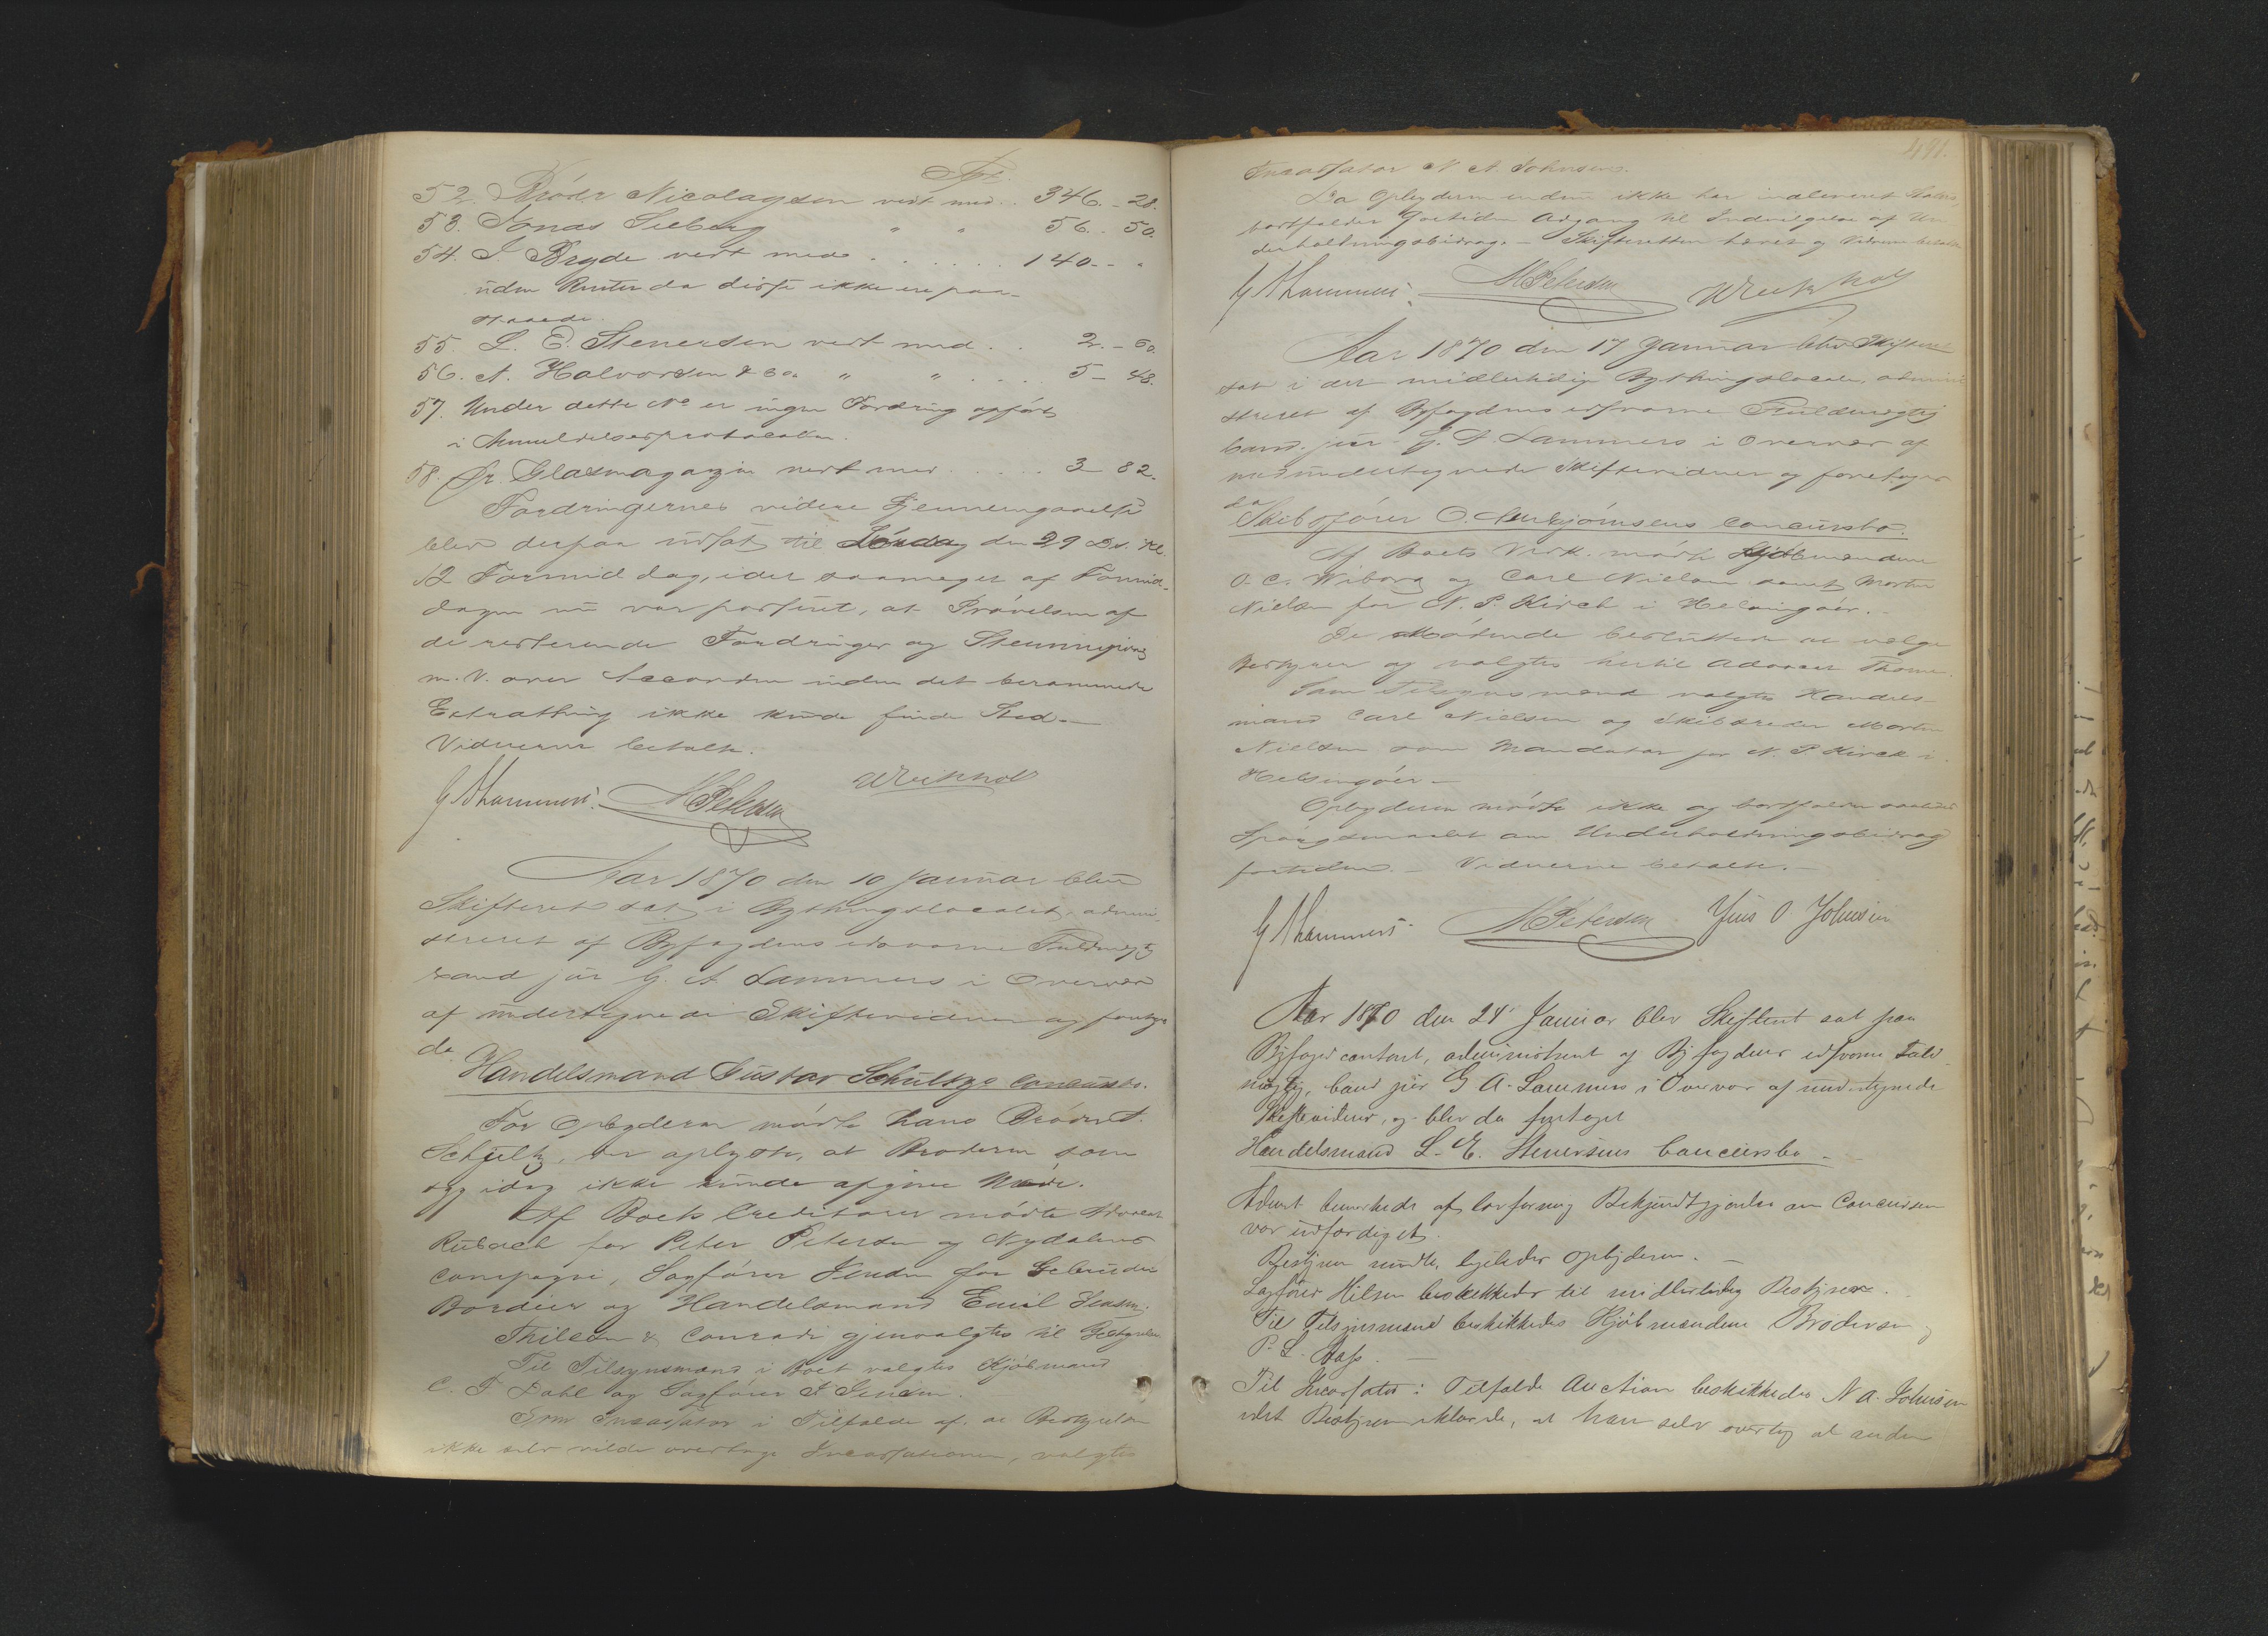 Spd.
52. Brødr Nicolaysen vedt med. . 346. - 28.
53. Jonas Sieberg " " 56. . 50.
54. I. Bryde vedt med . . . . . . 140 - - "
uden Renter da disse ikke ere paa-
staaede.
55. L. E. Stenersen vedt med . . 2. - 60.
56. A. Halvorsen & Co. " " . . . . 5 - 48.
57. Under dette No er ingen Fordring opført
i Anmeldelsesprotocolen.
58. Chr. Glasmagazin vedt med . . . . 3 - 82.
Fordringernes videre Gjennemgaaelse
blev derpaa udsat til Lørdag den 29 Ds. Kl.
12 Formiddag, idet saameget af Formid-
dagen nu var passeret, at Prøvelsen af
de resterende Fordringer og Stemmegivning
m. V. over Accorden inden det berammede
Extrathing ikke kunde finde Sted. —
Vidnerne betalte.
G A Lammers. M Petersen
Aar 1870 den 10 Januar blev
Skifteret sat i Bythingslocalet, admini-
streret af Byfogdens edsvorne Fuldmægtig
cand jur G. A. Lammers i Overvær
af undertegnede Skiftevidner og foretoges
da
Handelsmand Gustav Schultzs Concursbo.
For Opbyderen mødte hans Broder
Schultz, der oplyste, at Broderen som
syg idag ikke kunde afgive Møde.
Af Boets Creditorer mødte Advocat
Rubach for Peter Petersen og Nydalens
Compagni, Sagfører Jensen for Gebrüder
Bordier og Handelsmand Emil Jensen.
Thilesen & Conradi gjenvalgtes til Bestyrelse
Til Tilsynsmænd i Boet valgtes Kjøbmand
C. F. Dahl og Sagfører Jensen.
Som Incassator i Tilfælde af at Bestyrelsen
ikke selv vilde overtage Incassationen, valgtes
491.
Incassator N A Johnsen.
Da Opbyderen endnu ikke har indleveret Status,
bortfalder fortiden Adgang til Indvilgelse af Un-
derholdningsbidrag. — Skifteretten hævet og Vidnerne betalte
G A Lammers. M Petersen
Aar 1870 den 17 Januar blev Skifteret
sat i det midlertidige Bythingslocale, admini-
streret af Byfogdens edsvorne Fuldmægtig
cand. jur. G. A. Lammers i Overvær af
undertegnede Skiftevidner og foretoges
da
Skibsfører O. Concursbo.
Af Boets Vedk. mødte Kjøbmændene
O. C. Wiborg og Carl Nielsen samt Morten
Nielsen for N. P. Kirck i Helsingøer. -
De Mødende besluttede at vælge
Bestyrer og valgtes hertil Advocat Thome.
Som Tilsynsmænd valgtes Handels-
mand Carl Nielsen og Skibsreder Morten
Nielsen som Mandatar for N. P. Kirck i
Helsingøer —
Opbyderen mødte ikke og bortfalder saaledes
Spørgsmaalet om Underholdningsbidrag
fortiden. — Vidnerne betalte. —
G A Lammers. M Petersen Jens O Johnsen
Aar 1870 den 24' Januar blev Skifteret sat paa
Byfogedcontoret, administreret af Byfogdens edsvorne Fuld-
mægtig, cand jur G A. Lammers i Overvær af undertegnede
Skiftevidner, og blev da foretaget
Handelsmand L. E. Stenersens Concursbo -
Advst bemærkede at lovformig Bekjendtgjørelse om Concursen
var udfærdiget.
Bestyreren mødte, ligeledes Opbyderen. —
Sagfører Hilsen beskikkedes til midlertidig Bestyrer.
Til Tilsynsmænd beskikkedes Kjøbmændene Brodersen og
P. L. —
Til Incassator i Tilfælde Auction beskikkedes N A. Johnsen
idet Bestyreren erklærede, at han selv overtog al anden